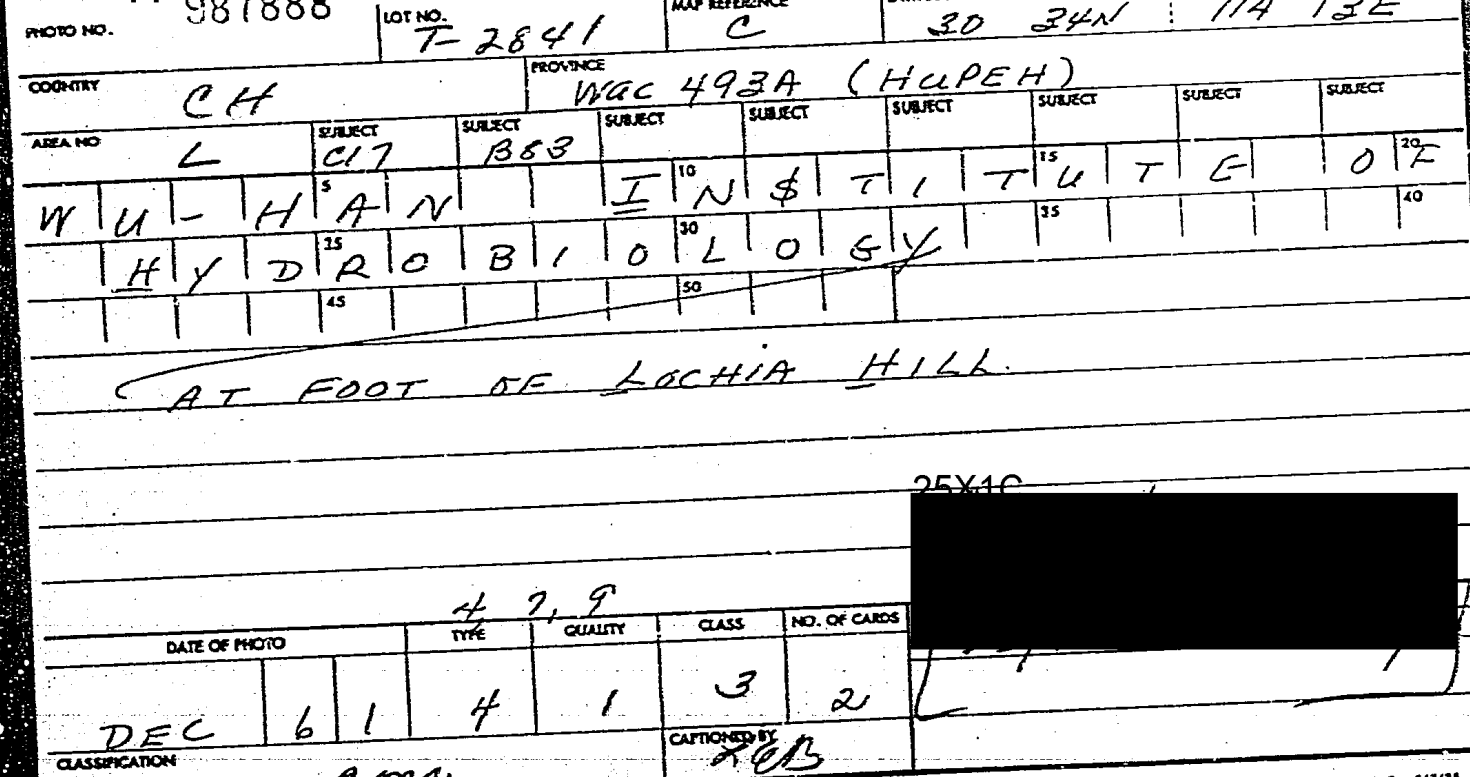 PHOTO NO. 987888 LOT NO. T-2841 MAP REFERENCE C 30 34N 114 13E
COUNTRY CH PROVINCE WAC 493A (HUPEH)
AREA NO L SUBJECT C17 SUBJECT B83 SUBJECT SUBJECT SUBJECT SUBJECT SUBJECT SUBJECT
5 10 15 20
WU-HAN IN$TITUTE OF
25 30 35 40
HYDROBIOLOGY
45 50
AT FOOT OF LOCHIA HILL.
25X1C
4 7, 9
DATE OF PHOTO TYPE QUALITY CLASS NO. OF CARDS
DEC 61 4 1 3 2
CLASSIFICATION CAPTIONED BY